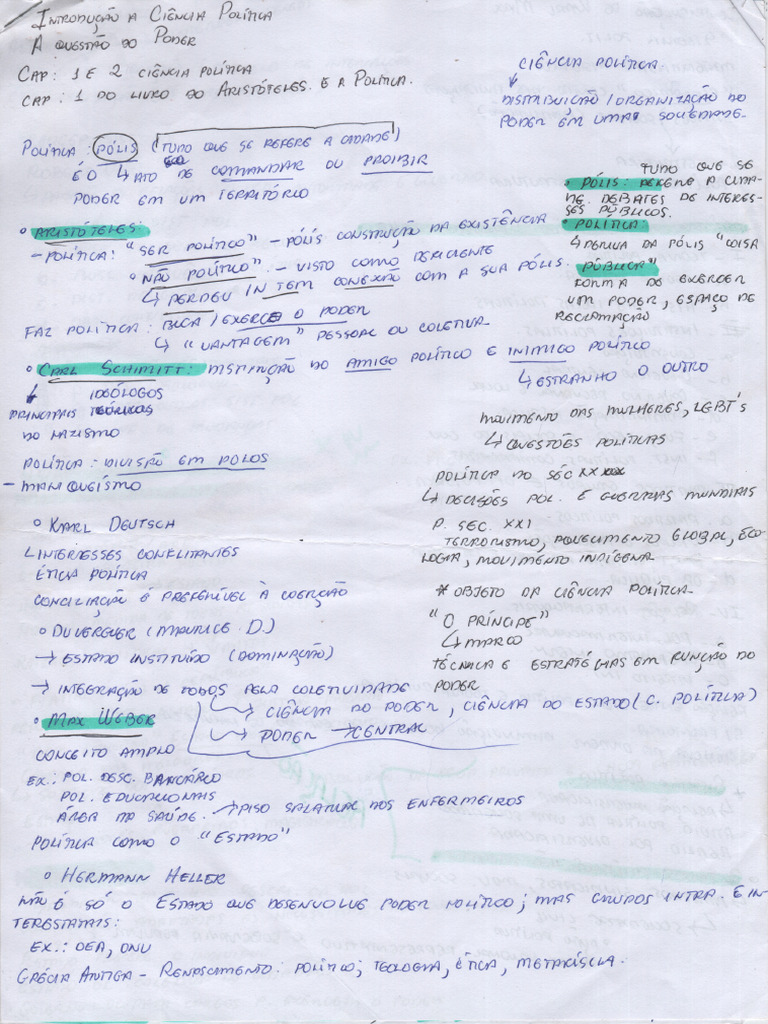 INTRODUÇÃO A CIÊNCIA POLÍTICA
A QUESTÃO DO PODER
CAP: 1 E 2 CIÊNCIA POLÍTICA
CAP: 1 DO LIVRO DO ARISTÓTELES. E A POLÍTICA.
CIÊNCIA POLÍTICA
↓
DISTRIBUIÇÃO/ORGANIZAÇÃO DO
PODER EM UMA SOCIEDADE.
POLÍTICA: PÓLIS (TUDO QUE SE REFERE A CIDADE)
É O ↳ ATO DE COMANDAR OU PROIBIR
PODER EM UM TERRITÓRIO
• PÓLIS: TUDO QUE SE
REFERE A CIDA-
DE. DEBATES DE INTERES-
SES PÚBLICOS.
• POLÍTICA:
↳ DERIVA DA PÓLIS "COISA
PÚBLICA"
FORMA DE EXERCER
UM PODER, ESPAÇO DE
RECLAMAÇÃO
• ARISTÓTELES:
- POLÍTICA: "SER POLÍTICO" - PÓLIS CONSTRUÇÃO DA EXISTÊNCIA
• NÃO POLÍTICO". - VISTO COMO DEFICIENTE
↳ PERDEU IN TEM CONEXÃO COM A SUA PÓLIS.
FAZ POLÍTICA: BUCA/EXERCE O PODER
↳ "VANTAGEM" PESSOAL OU COLETIVA-
• CARL SCHMITT: DISTINÇÃO DO AMIGO POLÍTICO E INIMIGO POLÍTICO
↳ ESTRANHO O OUTRO
↓ IDEÓLOGOS
PRINCIPAIS TEÓRICOS
DO NAZISMO
POLÍTICA: DIVISÃO EM POLOS
- MANIQUEÍSMO
MOVIMENTO DAS MULHERES, LGBT'S
↳ QUESTÕES POLÍTICAS
POLÍTICA NO SÉC XX
↳ DECISÕES POL. E GUERRAS MUNDIAIS
P. SEC. XXI
TERRORISMO, AQUECIMENTO GLOBAL, ECO
LOGIA, MOVIMENTO INDÍGENA
* OBJETO DA CIÊNCIA POLÍTICA-
"O PRÍNCIPE"
↳ MARCO
TÉCNICA E ESTRATÉGIAS EM FUNÇÃO DO
PODER
• KARL DEUTSCH
↳ INTERESSES CONFLITANTES
ÉTICA POLÍTICA
CONCILIAÇÃO É PREFERÍVEL À COERÇÃO
• DUVERGUER (MAURICE D.)
→ ESTADO INSTITUÍDO (DOMINAÇÃO)
→ INTEGRAÇÃO DE TODOS PELA COLETIVIDADE
→ CIÊNCIA DO PODER, CIÊNCIA DO ESTADO (C. POLÍTICA)
→ PODER → CENTRAL
• MAX WEBER
CONCEITO AMPLO
EX.: POL. DESC. BANCÁRIO
POL. EDUCACIONAIS
ÁREA DA SAÚDE. → PISO SALARIAL DOS ENFERMEIROS
POLÍTICA COMO O "ESTADO"
• HERMANN HELLER
NÃO É SÓ O ESTADO QUE DESENVOLVE PODER POLÍTICO; MAS GRUPOS INTRA. E IN
TERESTATAIS:
EX.: OEA, ONU
GRÉCIA ANTIGA - RENASCIMENTO: POLÍTICO; TEOLOGIA, ÉTICA, METAFÍSICA.